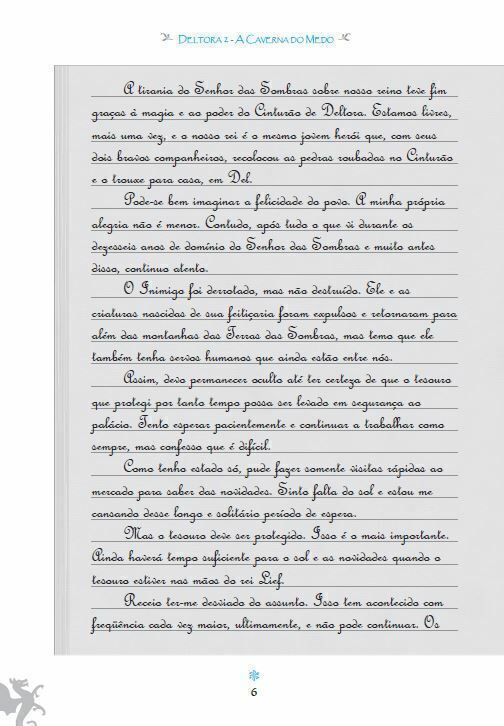 DELTORA 2 - A CAVERNA DO MEDO
A tirania do Senhor das Sombras sobre nosso reino teve fim
graças à magia e ao poder do Cinturão de Deltora. Estamos livres,
mais uma vez, e o nosso rei é o mesmo jovem herói que, com seus
dois bravos companheiros, recolocou as pedras roubadas no Cinturão
e o trouxe para casa, em Del.
Pode-se bem imaginar a felicidade do povo. A minha própria
alegria não é menor. Contudo, após tudo o que vi durante os
dezesseis anos de domínio do Senhor das Sombras e muito antes
disso, continuo atento.
O Inimigo foi derrotado, mas não destruído. Ele e as
criaturas nascidas de sua feitiçaria foram expulsos e retornaram para
além das montanhas das Terras das Sombras, mas temo que ele
também tenha servos humanos que ainda estão entre nós.
Assim, devo permanecer oculto até ter certeza de que o tesouro
que protegi por tanto tempo possa ser levado em segurança ao
palácio. Tento esperar pacientemente e continuar a trabalhar como
sempre, mas confesso que é difícil.
Como tenho estado só, pude fazer somente visitas rápidas ao
mercado para saber das novidades. Sinto falta do sol e estou me
cansando desse longo e solitário período de espera.
Mas o tesouro deve ser protegido. Isso é o mais importante.
Ainda haverá tempo suficiente para o sol e as novidades quando o
tesouro estiver nas mãos do rei Lief.
Receio ter-me desviado do assunto. Isso tem acontecido com
freqüência cada vez maior, ultimamente, e não pode continuar. Os
6